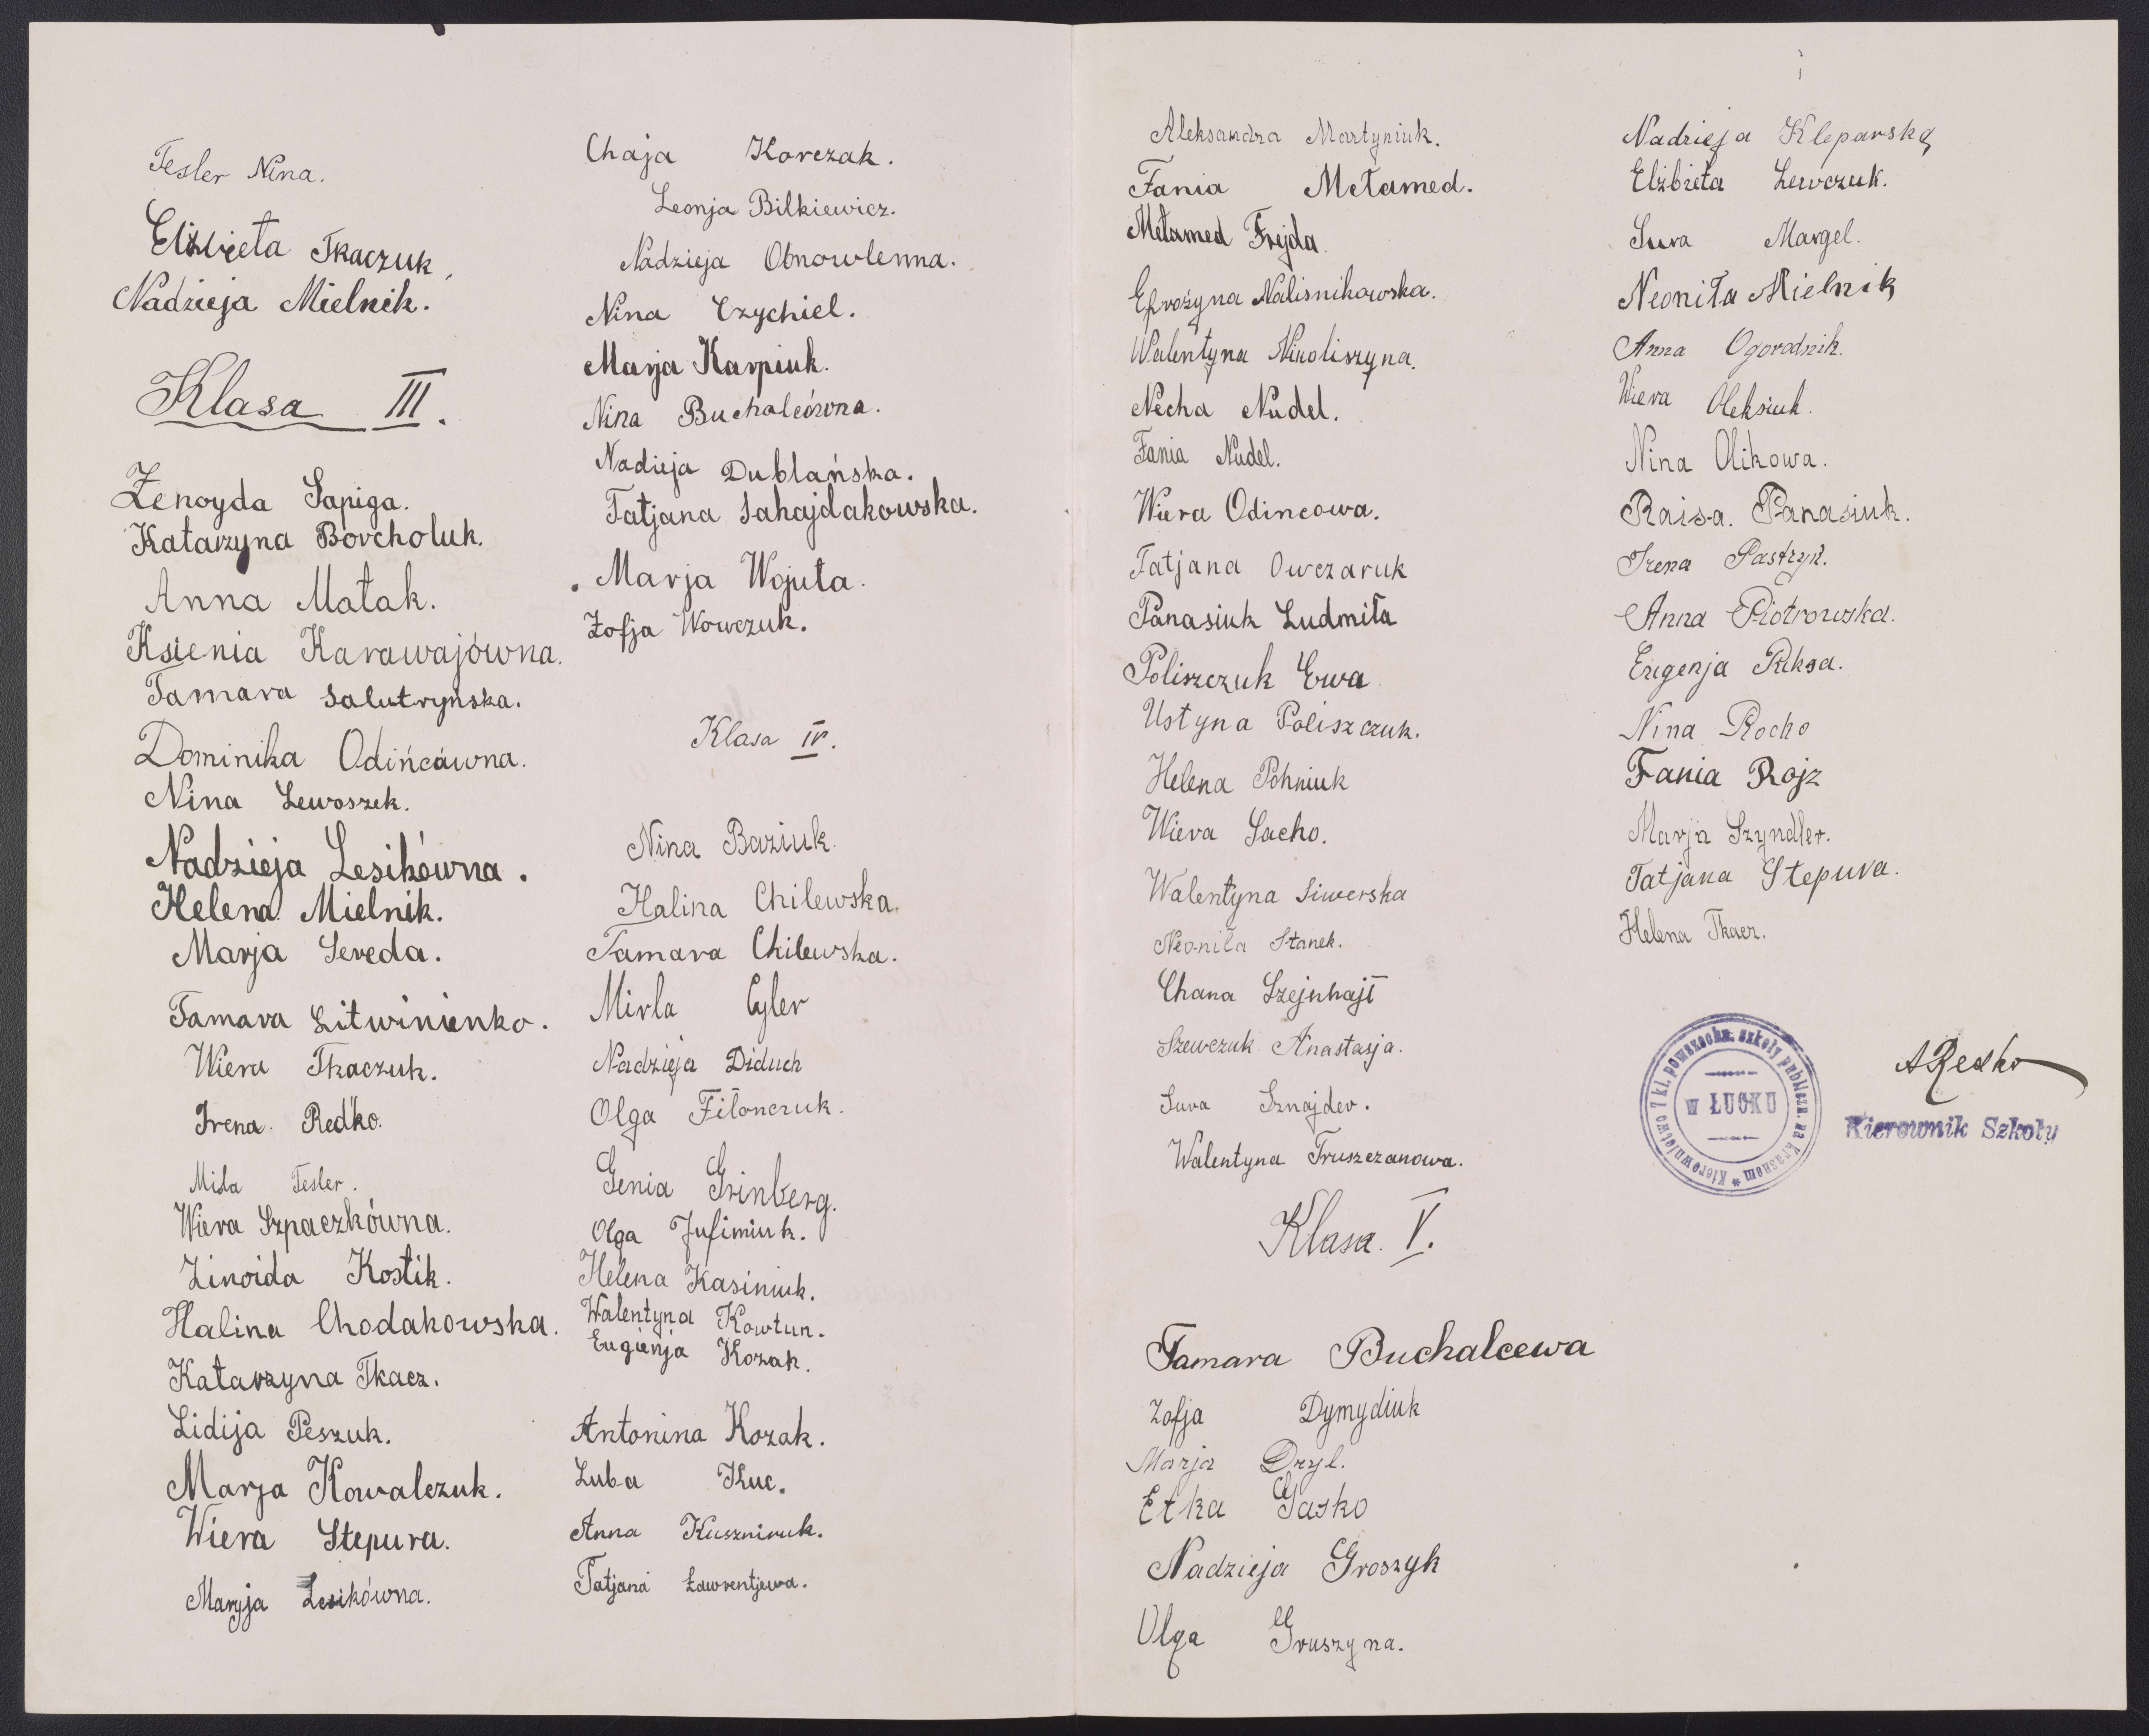 Tesler Nina.
Elżbieta Tkaczuk,
Nadzieja Mielnik.
Klasa III.
Zenoyda Sapiga.
Katarzyna Borcholuk.
Anna Matak.
Ksienia Karawajówna.
Tamara Salutryńska.
Dominika Odińcówna.
Nina Lewoszek.
Nadzieja Lesikówna.
Helena Mielnik.
Marja Sereda.
Tamara Litwinienko.
Wiera Tkaczuk.
Irena Redko.
Mida Tesler.
Wiera Szpaczkówna.
Zinoida Kostik.
Halina Chodakowska.
Katarzyna Tkacz.
Lidija Peszuk.
Marja Kowalczuk.
Wiera Stepura.
Maryja Lesikówna.
Chaja Korczak.
Leonja Bilkiewicz.
Nadzieja Obnowlenna.
Nina Czychiel.
Marja Karpiuk.
Nina Buchalcówna.
Nadieja Dublańska.
Tatjana Sahajdakowska.
Marja Wojuta.
Zofja Wowczuk.
Klasa IV.
Nina Baziuk.
Halina Chilewska.
Tamara Chilewska.
Mirla Cyler
Nadzieja Diduch
Olga Filonczuk.
Genia Grinberg.
Olga Jufimiuk.
Helena Kasiniuk.
Walentyna Kowtun.
Eugienja Kozak.
Antonina Kozak.
Luba Kuc.
Anna Kuszniruk.
Tatjana Ławrentjewa.
Aleksandra Martyniuk.
Fania Mełamed.
Mełamed Frejda
Efrozyna Nalisnikowska.
Walentyna Nikoliszyna.
Necha Nudel.
Fania Nudel.
Wiera Odincowa.
Tatjana Owczaruk
Panasiuk Ludmiła
Poliszczuk Ewa
Ustyna Poliszczuk.
Helena Pohniuk
Wiera Sacho.
Walentyna Siwerska
Neoniła Stanek.
Chana Szejnhajt
Szewczuk Anastasja.
Sura Sznajder.
Walentyna Truszczanowa.
Klasa V.
Tamara Buchalcewa
Zofja Dymydiuk
Marja Dzyl.
Etka Gasko
Nadzieja Groszyk
Olga Gruszyna.
Nadzieja Kleparska
Elżbieta Lewczuk.
Sura Margel.
Neoniła Mielnik
Anna Ogorodnik.
Wiera Oleksiuk.
Nina Olikowa.
Raisa. Panasiuk.
Irena Pastryk.
Anna Piotrowska.
Eugenja Puksa.
Nina Rocho
Fania Rojz
Marja Szyndler.
Tatjana Stepura.
Helena Tkacz.
Kierownictwo 7 kl. powszechn. szkoły publiczn. na Krasnem *
W ŁUCKU
ARedko
Kierownik Szkoły